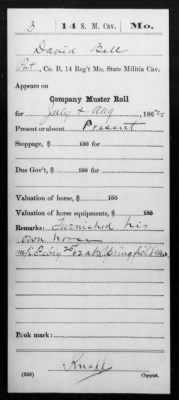 B 14 S. M. Cav. Mo.
David Bell
Pvt, Co. B, 14 Reg't Mo. State Militia Cav.
Appears on
Company Muster Roll
for July & Aug, 186
Present or absent Present
Stoppage, $ 100 for
Due Gov't, $ 100 for
Valuation of horse, $ 100
Valuation of horse equipments, $ 100
Remarks: Furnished his
own horse
Springfield Mo
Book mark:
(359) Copyist.